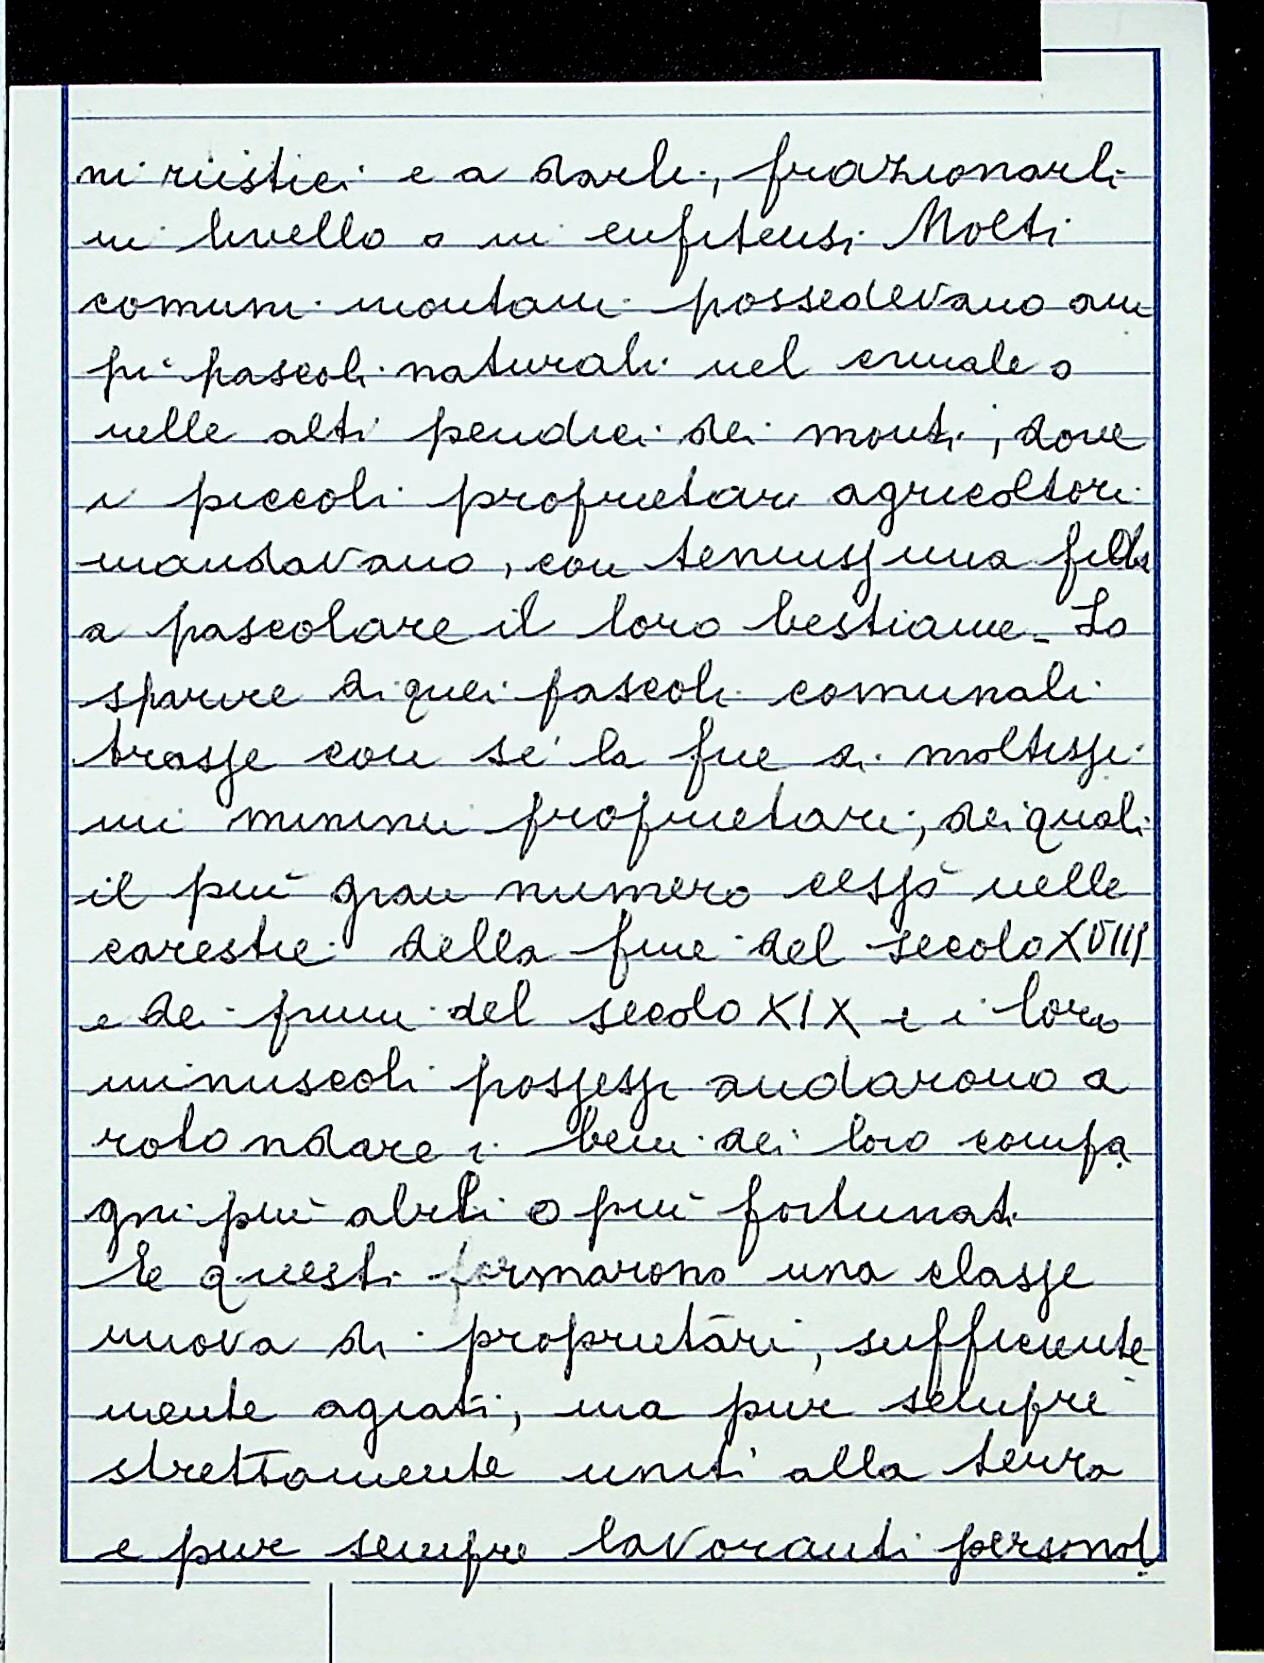 ni rustici e a darli, frazionarli
in livello o in enfiteusi. Molti
comuni montani possedevano am
pi pascoli naturali nel crinale o
nelle alti pendici dei monti, dove
i piccoli proprietari agricoltori
mandavano, con tenuissima fida
a pascolare il loro bestiame. Lo
sparire di quei pascoli comunali
trasse con sé la fine di moltissi
mi minimi proprietari, dei quali
il più gran numero cessò nelle
carestie della fine del secolo XVIII
e dei primi del secolo XIX e i loro
minuscoli possessi andarono a
rotondare i beni dei loro compa
gni più abili o più fortunati
E questi formarono una classe
nuova di proprietari, sufficiente
mente agiati, ma pur sempre
strettamente uniti alla terra
e pur sempre lavoranti personal